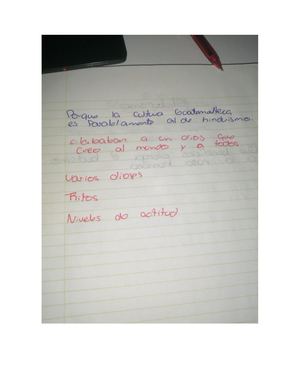 Porque la cultura Guatemalteca
es Paralelamente al de hinduismo.
a un dios que
Creo al mundo y a todos
Varios dioses
Ritos
Niveles de actitud